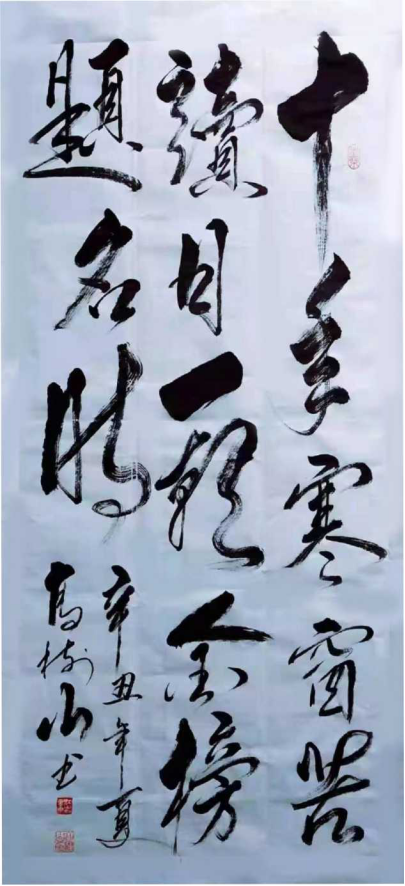 十年寒窗苦
讀日一朝金榜
題名時
辛丑年夏
高樹山书